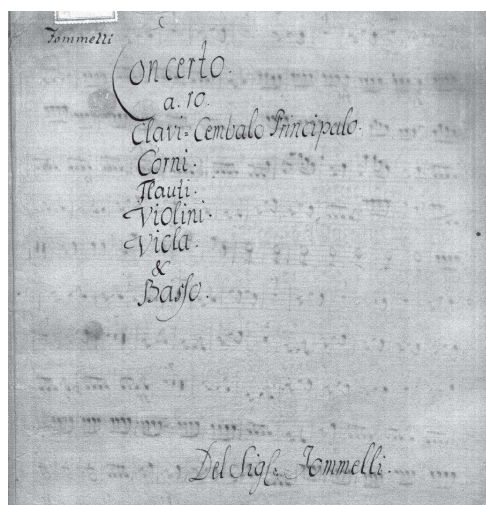 Jommelli
Concerto.
a. 10.
Clavi=Cembalo Principalo.
Corni.
Flauti.
Violini.
Viola.
&
Basso.
Del Sigr. Jommelli.